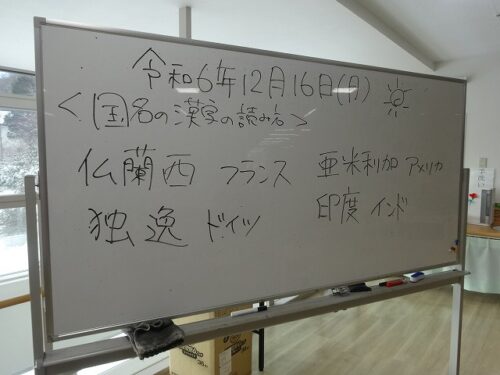 令和6年12月16日(月)
<国名の漢字の読み方>
仏蘭西 フランス
亜米利加 アメリカ
独逸 ドイツ
印度 インド